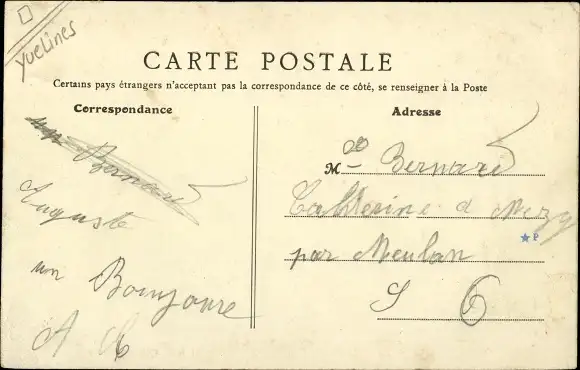 yvelines
CARTE POSTALE
Certains pays étrangers n'acceptant pas la correspondance de ce côté, se renseigner à la Poste
Correspondance
Bernard
Auguste
un Bonjoure
A
Adresse
M Bernard
Catterine a Mezy
par Meulan
S 6
★P